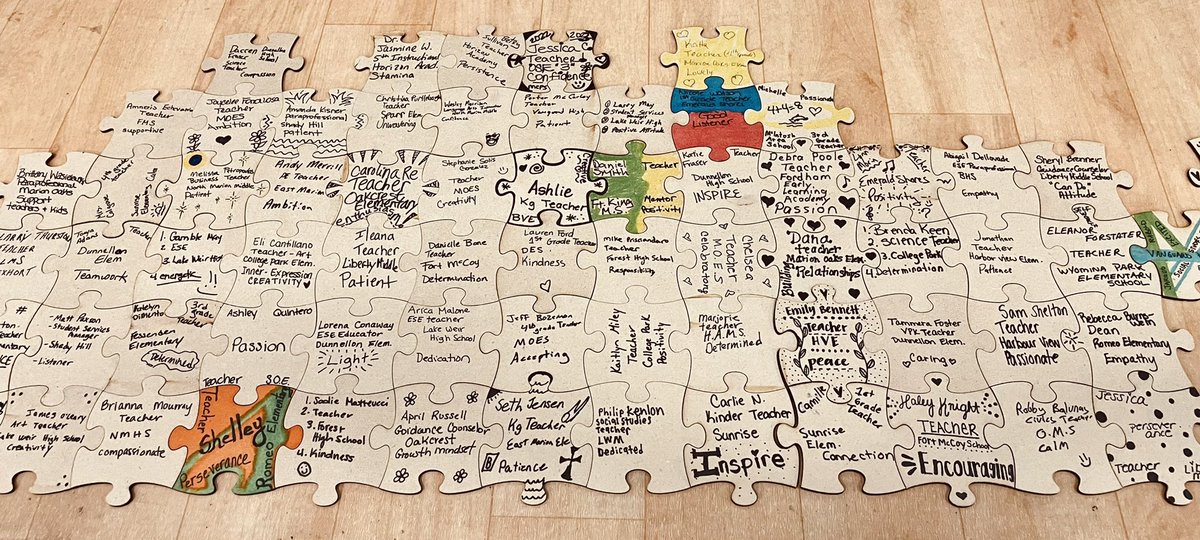 Darren
Science
Teacher
Compassion
Dr.
Jasmine W.
5th Instruction
Horizon Acad.
Stamina
Betsy
Sullivan
Teacher
Horizon
Academy
Persistence
Jessica C
Teacher
Confidence
Katie
Teacher
Lovely
Teacher
Emerald Shores
Good
Listener
Michelle
Passionate
4+4=8
McIntosh
Area
School
3rd
Grade
Teacher
Teacher
FMS
Supportive
Teacher
MOES
Ambition
Amanda
paraprofessional
Shady Hill
patient
Christina
Teacher
Sparr Elem
Unwavering
Wesley
Teacher
Teacher
Vanguard High
Patient
@ Larry May
@ Student Services
Manager
@ Lake Weir High
@ Positive Attitude
Brittany
Paraprofessional
Marion Oaks
Support
teachers + Kids
Melissa
Business Teacher
North Marion middle
Patient
Andy Merrill
PE Teacher
East Marion
Ambition
Carolina Re
Teacher
Oakcrest
Elementary
enthusiasm
Stephanie Solis
Gonzales
Teacher
MOES
Creativity
Ashlie
Kg Teacher
BVE
Daniel
Teacher
Ft. King
M.S.
Mentor
Positivity
Katie
Fraser
Teacher
Dunnellon
High School
INSPIRE
Debra Poole
Teacher
Fordham
Early
Learning
Academy
Passion
Emerald Shores
Positivity
Abigail Dellovade
ESE Paraprofessional
BHS
Empathy
Sheryl Brenner
Guidance Counselor
Liberty Middle School
"Can Do"
Attitude
LARRY THURSTON
TEACHER
LMS
EXHORT
Teacher
Dunnellon
Elem
Teamwork
1. Gamble May
2. ESE
3. Lake Weir High
4. energetic
Eli Cantillano
Teacher - Art
College Park Elem.
Inner-Expression
CREATIVITY
Ileana
Teacher
Liberty Middle
Patient
Danielle Bone
Teacher
Fort McCoy
Determination
Lauren Ford
1st Grade Teacher
DES
Kindness
Mike
Teacher
Forest High School
Responsibility
Chelsea
Teacher
M.O.E.S
Celebratory
Dana
teacher
Marion Oaks Elem
Building
Relationships
1. Brenda Keen
2. SCIENCE Teacher
3. College Park
4. Determination
Jonathan
Teacher
Harbor View Elem.
Patience
SELF
ELEANOR
FORSTATER
TEACHER
WYOMINA PARK
ELEMENTARY
SCHOOL
VANGUARD
- Matt Paxson
- Student Services
Manager
- Shady Hill
- Listener
3rd
grade
Teacher
Fessenden
Elementary
Determined
Ashley Quintero
Passion
Lorena Conaway
ESE Educator
Dunnellon Elem.
Light
Arica Malone
ESE teacher
Lake Weir
High School
Dedication
Jeff Bozeman
4th grade Teacher
MOES
Accepting
Kaitlyn Hiley
Teacher
College Park
Positivity
Marjorie
teacher
H.A.M.S.
Determined
Emily Bennett
Teacher
HVE
peace
Tammera Foster
VPK Teacher
Dunnellon Elem.
Caring
Sam Shelton
Teacher
Harbour View
Passionate
Rebecca
Dean
Romeo Elementary
Empathy
James O'Leary
Art Teacher
Lake Weir High School
Creativity
Brianna Mourray
Teacher
NMHS
compassionate
Teacher S.O.E.
Teacher
Shelley
Perseverance
Romeo Elementary
1. Sadie Matteucci
2. Teacher
3. Forest
High School
4. Kindness
April Russell
Guidance Counselor
Oakcrest
Growth mindset
Seth Jensen
Kg Teacher
East Marion Ele.
Patience
Philip Kenlon
social studies
teacher
LWM
Dedicated
Carlie N.
Kinder Teacher
Sunrise
Inspire
Camille
1st
Grade
Teacher
Sunrise
Elem.
Connection
Haley Knight
TEACHER
FORT MCCOY SCHOOL
Encouraging
Robby
Civics Teacher
O.M.S
Calm
Jessica
persever
ance
Teacher